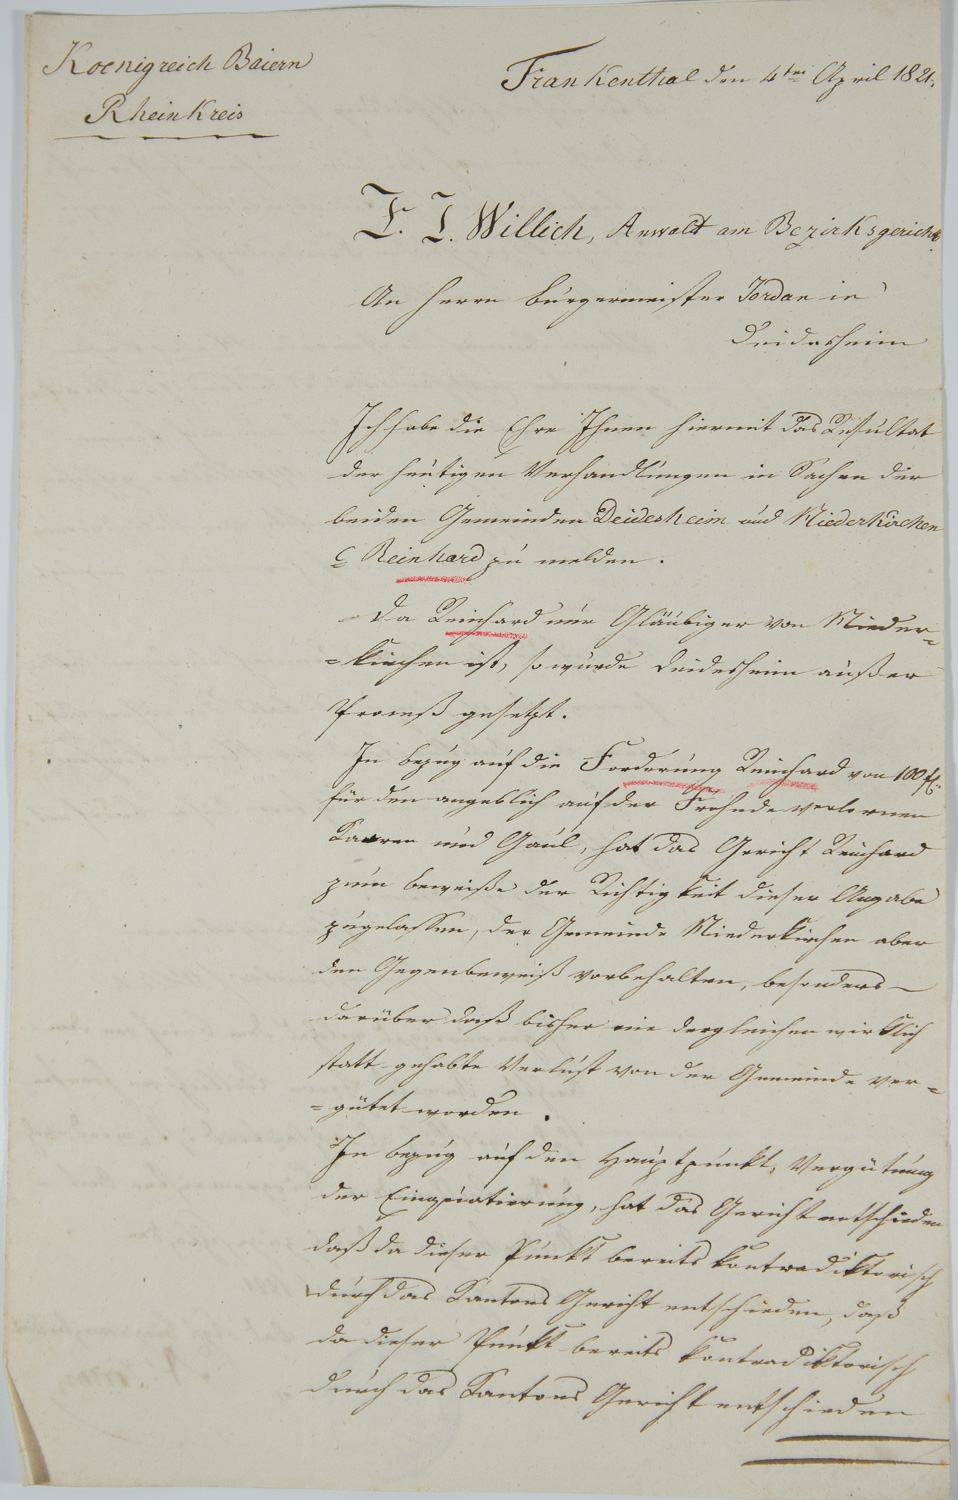 Koenigreich Baiern
Rheinkreis
Frankenthal den 4ten April 1821.
F. J. Willich, Anwalt am Bezirksgericht
An Herrn Bürgermeister Jordan in
Deidesheim
Ich habe die Ehre Ihnen hiermit das Resultat
der heutigen Verhandlungen in Sachen der
beiden Gemeinden Deidesheim und Niederkirchen
C Reinhard zu melden.
Da Reinhard nur Gläubiger von Nieder-
=kirchen ist, so wurde Deidesheim außer
Prozeß gesetzt.
In bezug auf die Forderung Reinhard von 100 fl:
für den angeblich auf der Frohnde verlornen
Karren und Gaul, hat das Gericht Reinhard
zum beweiße der Richtigkeit dieser Angabe
zugelassen, der Gemeinde Niederkirchen aber
den Gegenbeweiß vorbehalten, besonders
darüber daß bisher nie dergleichen wirklich
statt gehabte Verlust von der Gemeinde ver=
=gütet worden.
In bezug auf den Hauptpunkt, Vergütung
der Einquatierung, hat das Gericht entschieden
daß da dieser Punkt bereits kontradiktorisch
durch das Kantons Gericht entschieden, daß
da dieser Punkt bereits kontradiktorisch
durch das Kantons Gericht entschieden